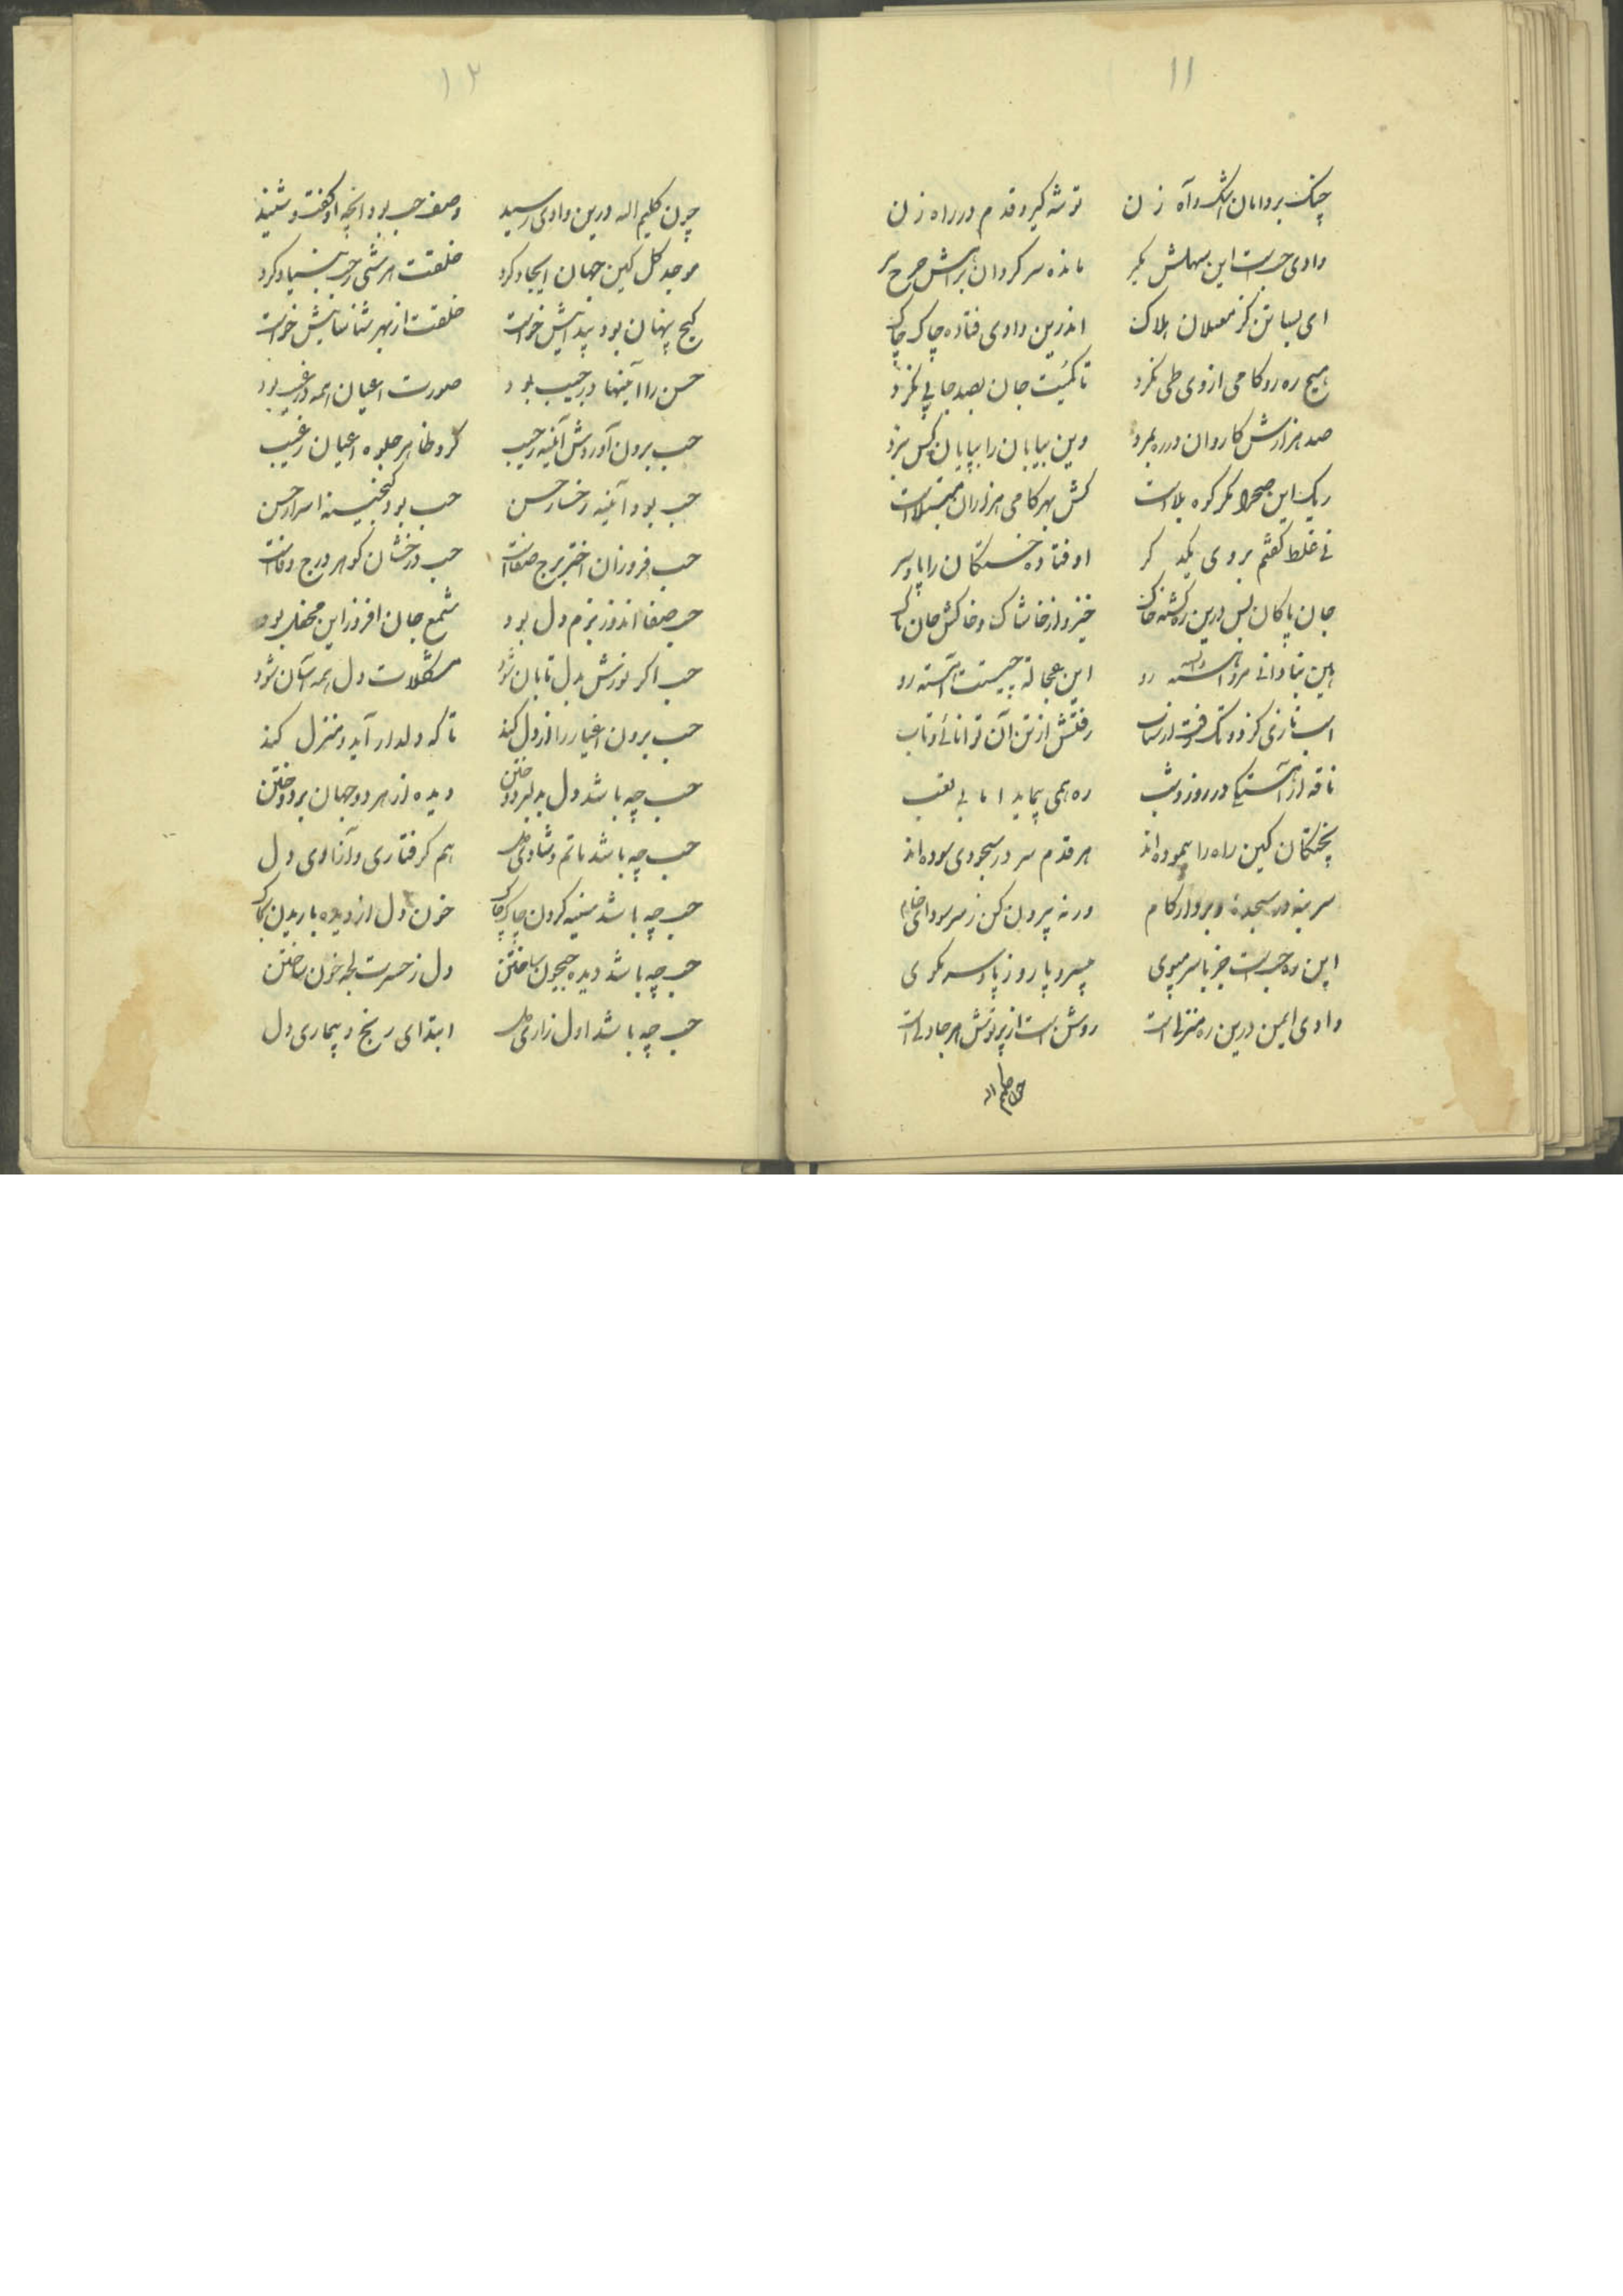 ۱۱
چنک بر دامان اشک و آه زن توشه کیر و قدم در راه زن
وادی حب است این سهلش مکیر مانده سرکردان براهش چرخ پیر
ای بسا تن کز مغیلان هلاک اندرین وادی فتاده چاک چاک
هیچ ره رو کامی از وی طی نکرد تا کمیت جان بصد جا پی نکرد
صد هزارش کاروان در ره بمرد وین بیابان را بپایان کس نبرد
ریک این صحرا مکر کوه بلاست کش بهر کامی هزاران مبتلاست
نی غلط کفتم بروی یکدکر اوفتاده خستکان را پا و سر
جان پاکان بس درین ره کشته خاک خیزد از خاشاک و خاکش جان پاک
هین بنادانی مرو آهسته رو این عجاله چیست آهسته رو
اسب تازی کز دو تک رفت از شتاب رفتش از تن آن توانائی و تاب
ناقه از آهستکی در روز و شب ره همی پیماید اما بی تعب
پختکان کین راه را پیموده اند هر قدم سر در سجودی سوده اند
سر بنه در سجده و بردار کام ورنه بیرون کن ز سر سودای خام
این ره حب است جز با سر مپوی بی سر و پا رو ز پا و سر مکوی
وادی ایمن درین ره منزلی است روشن است از پرتوش هر جا دلی است
چون کلیم اله
۱۲
چون کلیم اله درین وادی رسید وصف حب بود آنچه او کفت و شنید
موجد کل کین جهان ایجاد کرد خلقت هر شی ز حب بنیاد کرد
کنج پنهان بود پیدائیش خواست خلقت از بهر شناسائیش خواست
حسن را آئینها در جیب بود صورت اعیان همه در غیب بود
حب برون آوردش آئینه ز جیب کرد ظاهر جلوه اعیان ز غیب
حب بود آئینه رخسار حسن حب بود کنجینه اسرار حسن
حب فروزان اختر برج صفاست حب درخشان کوهر درج وفاست
حب صفا اندوز بزم دل بود شمع جان افروز این محفل بود
حب اکر نورش بدل تابان شود مشکلات دل همه آسان شود
حب برون اغیار را از دل کند تا که دلدار آید و منزل کند
حب چه باشد دل بدلبر دوختن دیده از هر دو جهان بر دوختن
حب چه باشد ماتم و شادی دل هم کرفتاری و آزادی دل
حب چه باشد سینه کردن چاک چاک خون دل از دیده باریدن بخاک
حب چه باشد دیده جیحون ساختن دل ز حسرت لجه خون ساختن
حب چه باشد اول زاری دل ابتدای رنج و بیماری دل